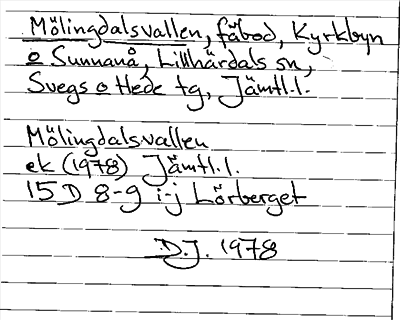 Mölingdalsvallen, fäbod, Kyrkbyn
o Sunnanå, Lillhärdals sn,
Svegs o Hede tg, Jämtl.l.
Mölingdalsvallen
ek (1978) Jämtl.l.
15D 8-9 i-j Lörberget
D.J. 1978